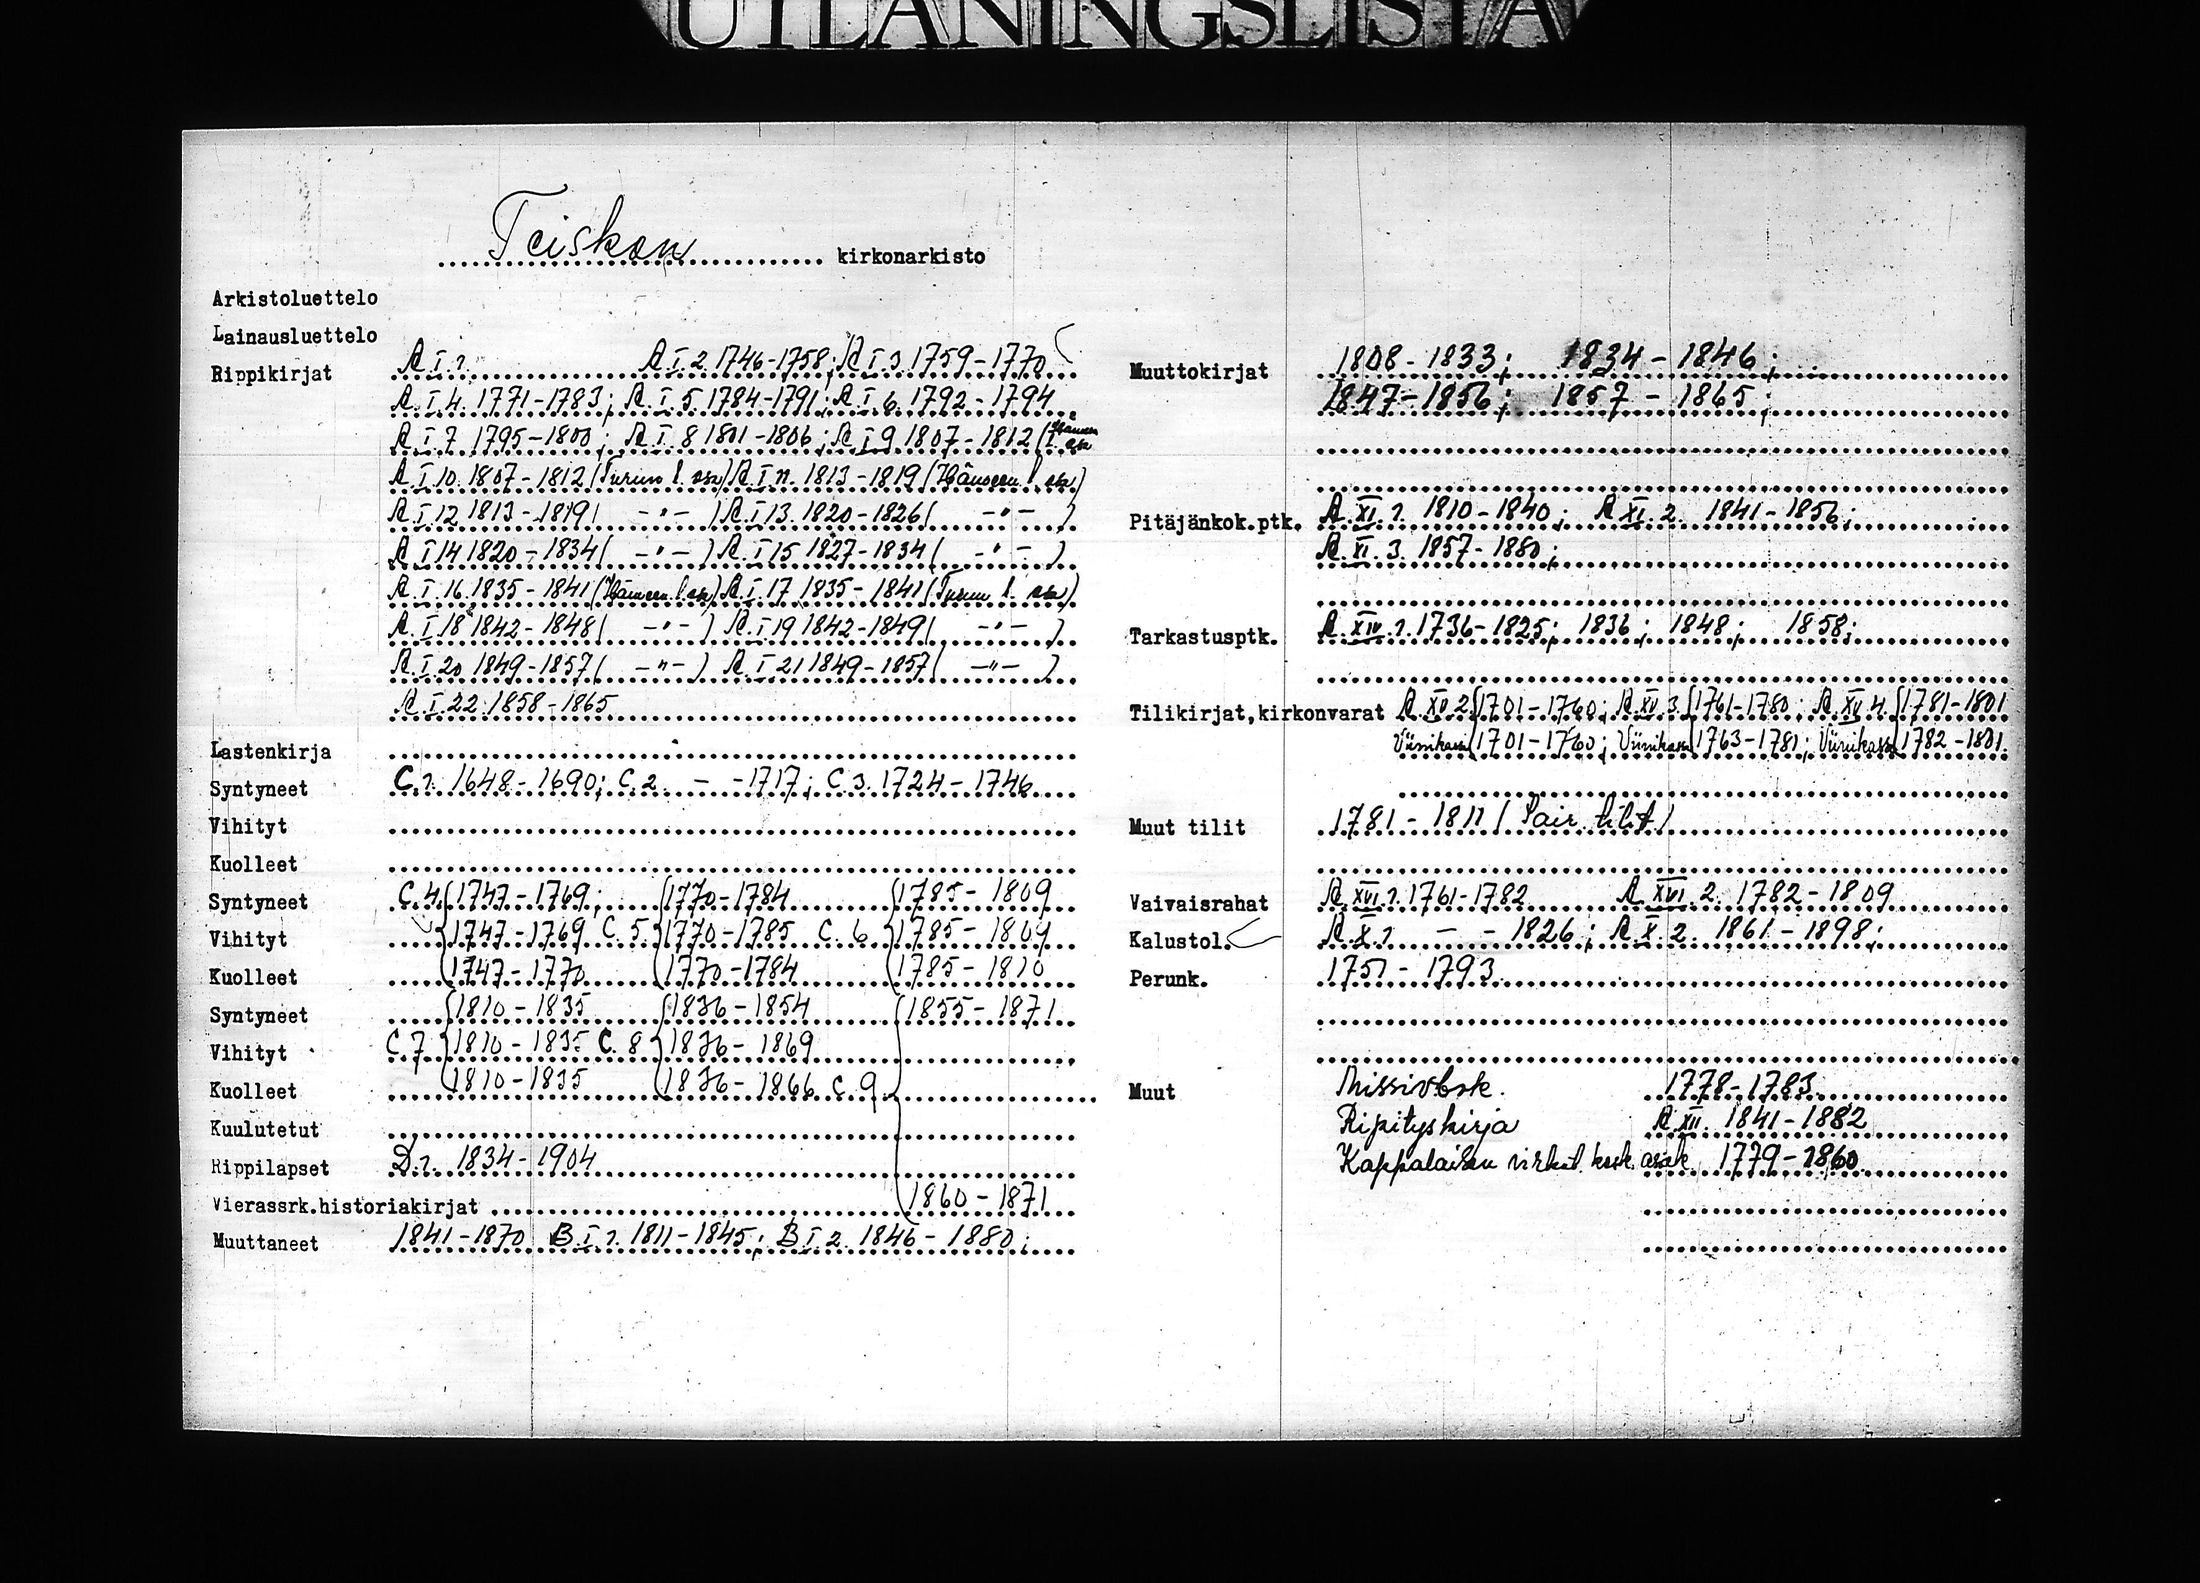 UTLÅNINGSLISTA
Teiskon kirkonarkisto
Arkistoluettelo
Lainausluettelo
Rippikirjat A I.1. A I.2. 1746-1758; A I.3. 1759-1770
A I.4. 1771-1783; A I.5. 1784-1791; A I.6. 1792-1794
A I.7 1795-1800; A I.8 1801-1806; A I.9 1807-1812 (Hämeen l. osa
A I.10. 1807-1812 (Turun l. osa) A I.11. 1813-1819 (Hämeen l. osa)
A I.12 1813-1819 ( -"- ) A I.13. 1820-1826 ( -"- )
A I.14 1820-1834 ( -"- ) A I.15 1827-1834 ( -"- )
A I.16. 1835-1841 (Hämeen l. osa) A I.17 1835-1841 (Turun l. osa)
A I.18 1842-1848 ( -"- ) A I.19 1842-1849 ( -"- )
A I.20 1849-1857 ( -"- ) A I.21 1849-1857 ( -"- )
A I.22. 1858-1865
Lastenkirja
Syntyneet C.1. 1648-1690; C.2. - -1717; C.3. 1724-1746
Vihityt
Kuolleet
Syntyneet C.4. 1747-1769; 1770-1784 1785-1809
Vihityt 1747-1769 C.5. 1770-1785 C.6. 1785-1809
Kuolleet 1747-1770 1770-1784 1785-1810
Syntyneet 1810-1835 1836-1854 1855-1871
Vihityt C.7. 1810-1835 C.8 1836-1869
Kuolleet 1810-1835 1836-1866 C.9.
Kuulutetut
Rippilapset D.1. 1834-1904
Vierassrk.historiakirjat 1860-1871
Muuttaneet 1841-1870 B I.1. 1811-1845; B I.2. 1846-1880;
Muuttokirjat 1808-1833; 1834-1846;
1847-1856; 1857-1865;
Pitäjänkok.ptk. A XI.1. 1810-1840; A XI.2. 1841-1856;
A XI.3. 1857-1880;
Tarkastusptk. A XIV.1. 1736-1825; 1836; 1848; 1858;
Tilikirjat,kirkonvarat A XV.2. 1701-1760; A XV.3. 1761-1780; A XV.4. 1781-1801
Viinikassa 1701-1760; Viinikassa 1763-1781; Viinikassa 1782-1801.
Muut tilit 1781-1811 ( tilit)
Vaivaisrahat A XVI.1. 1761-1782 A XVI.2. 1782-1809
Kalustol. A X.1 - - 1826; A X.2. 1861-1898;
Perunk. 1751-1793.
Muut Missivbok. 1778-1783.
Ripityskirja A XII. 1841-1882
Kappalaisen 1779-1860